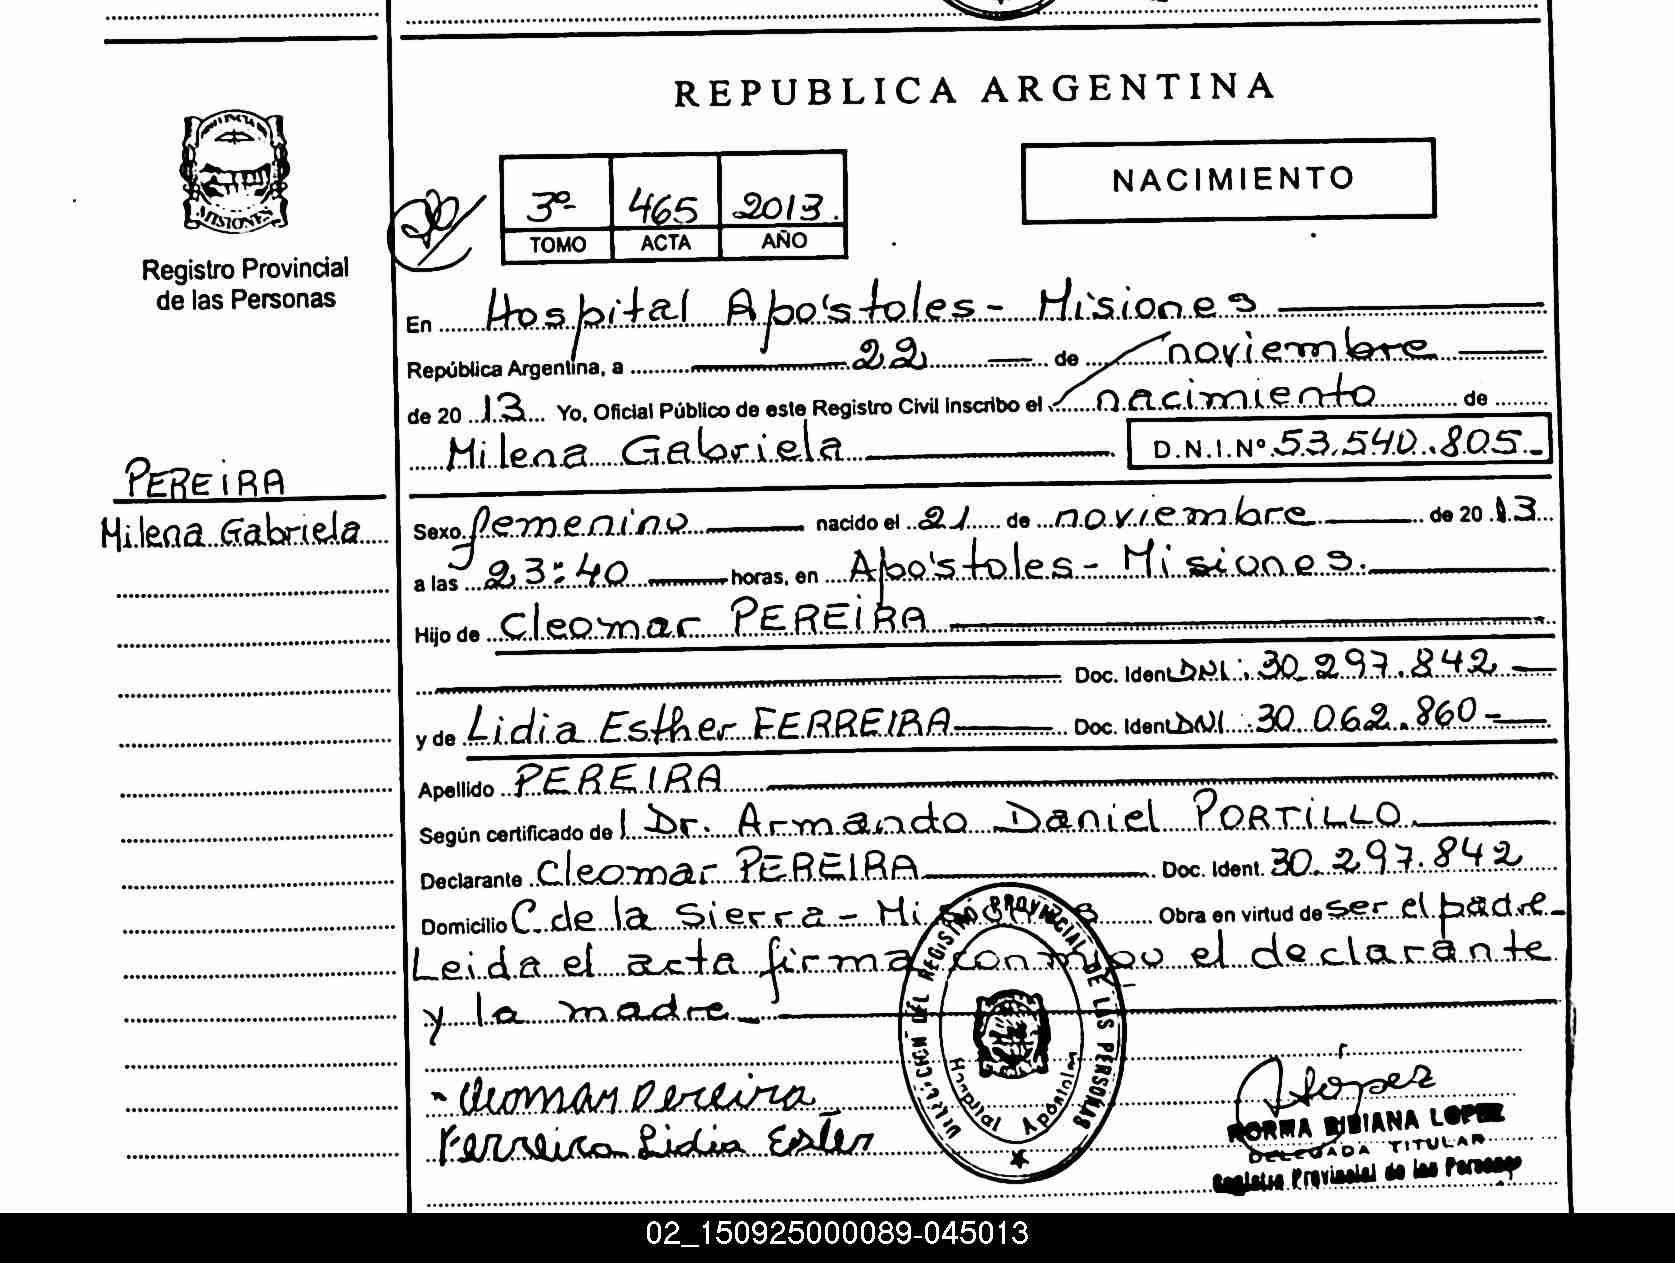 REPUBLICA ARGENTINA
MISIONES
Registro Provincial
de las Personas
3º 465 2013.
TOMO ACTA AÑO
NACIMIENTO
En Hospital Apóstoles - Misiones
República Argentina, a 22 de noviembre
de 2013 Yo, Oficial Público de este Registro Civil Inscribo el nacimiento de
Milena Gabriela D.N.I.Nº 53.540.805.-
PEREIRA
Milena Gabriela
Sexo femenino nacido el 21 de noviembre de 2013
a las 23:40 horas, en Apóstoles - Misiones.
Hijo de Cleomar PEREIRA
Doc. Ident. DNI: 30.297.842
y de Lidia Esther FERREIRA Doc. Ident. DNI: 30.062.860-
Apellido PEREIRA
Según certificado de l Dr. Armando Daniel PORTILLO.
Declarante Cleomar PEREIRA Doc. Ident. 30.297.842
Domicilio C. de la Sierra - Misiones Obra en virtud de ser el padre-
Leida el acta firma conmigo el declarante
y la madre.
Cleomar Pereira
Ferreira Lidia Ester
DIRECCION DEL REGISTRO PROVINCIAL DE LAS PERSONAS
Hospital Apóstoles
López
NORMA BIBIANA LOPEZ
DELEGADA TITULAR
Registro Provincial de las Personas
02_150925000089-045013